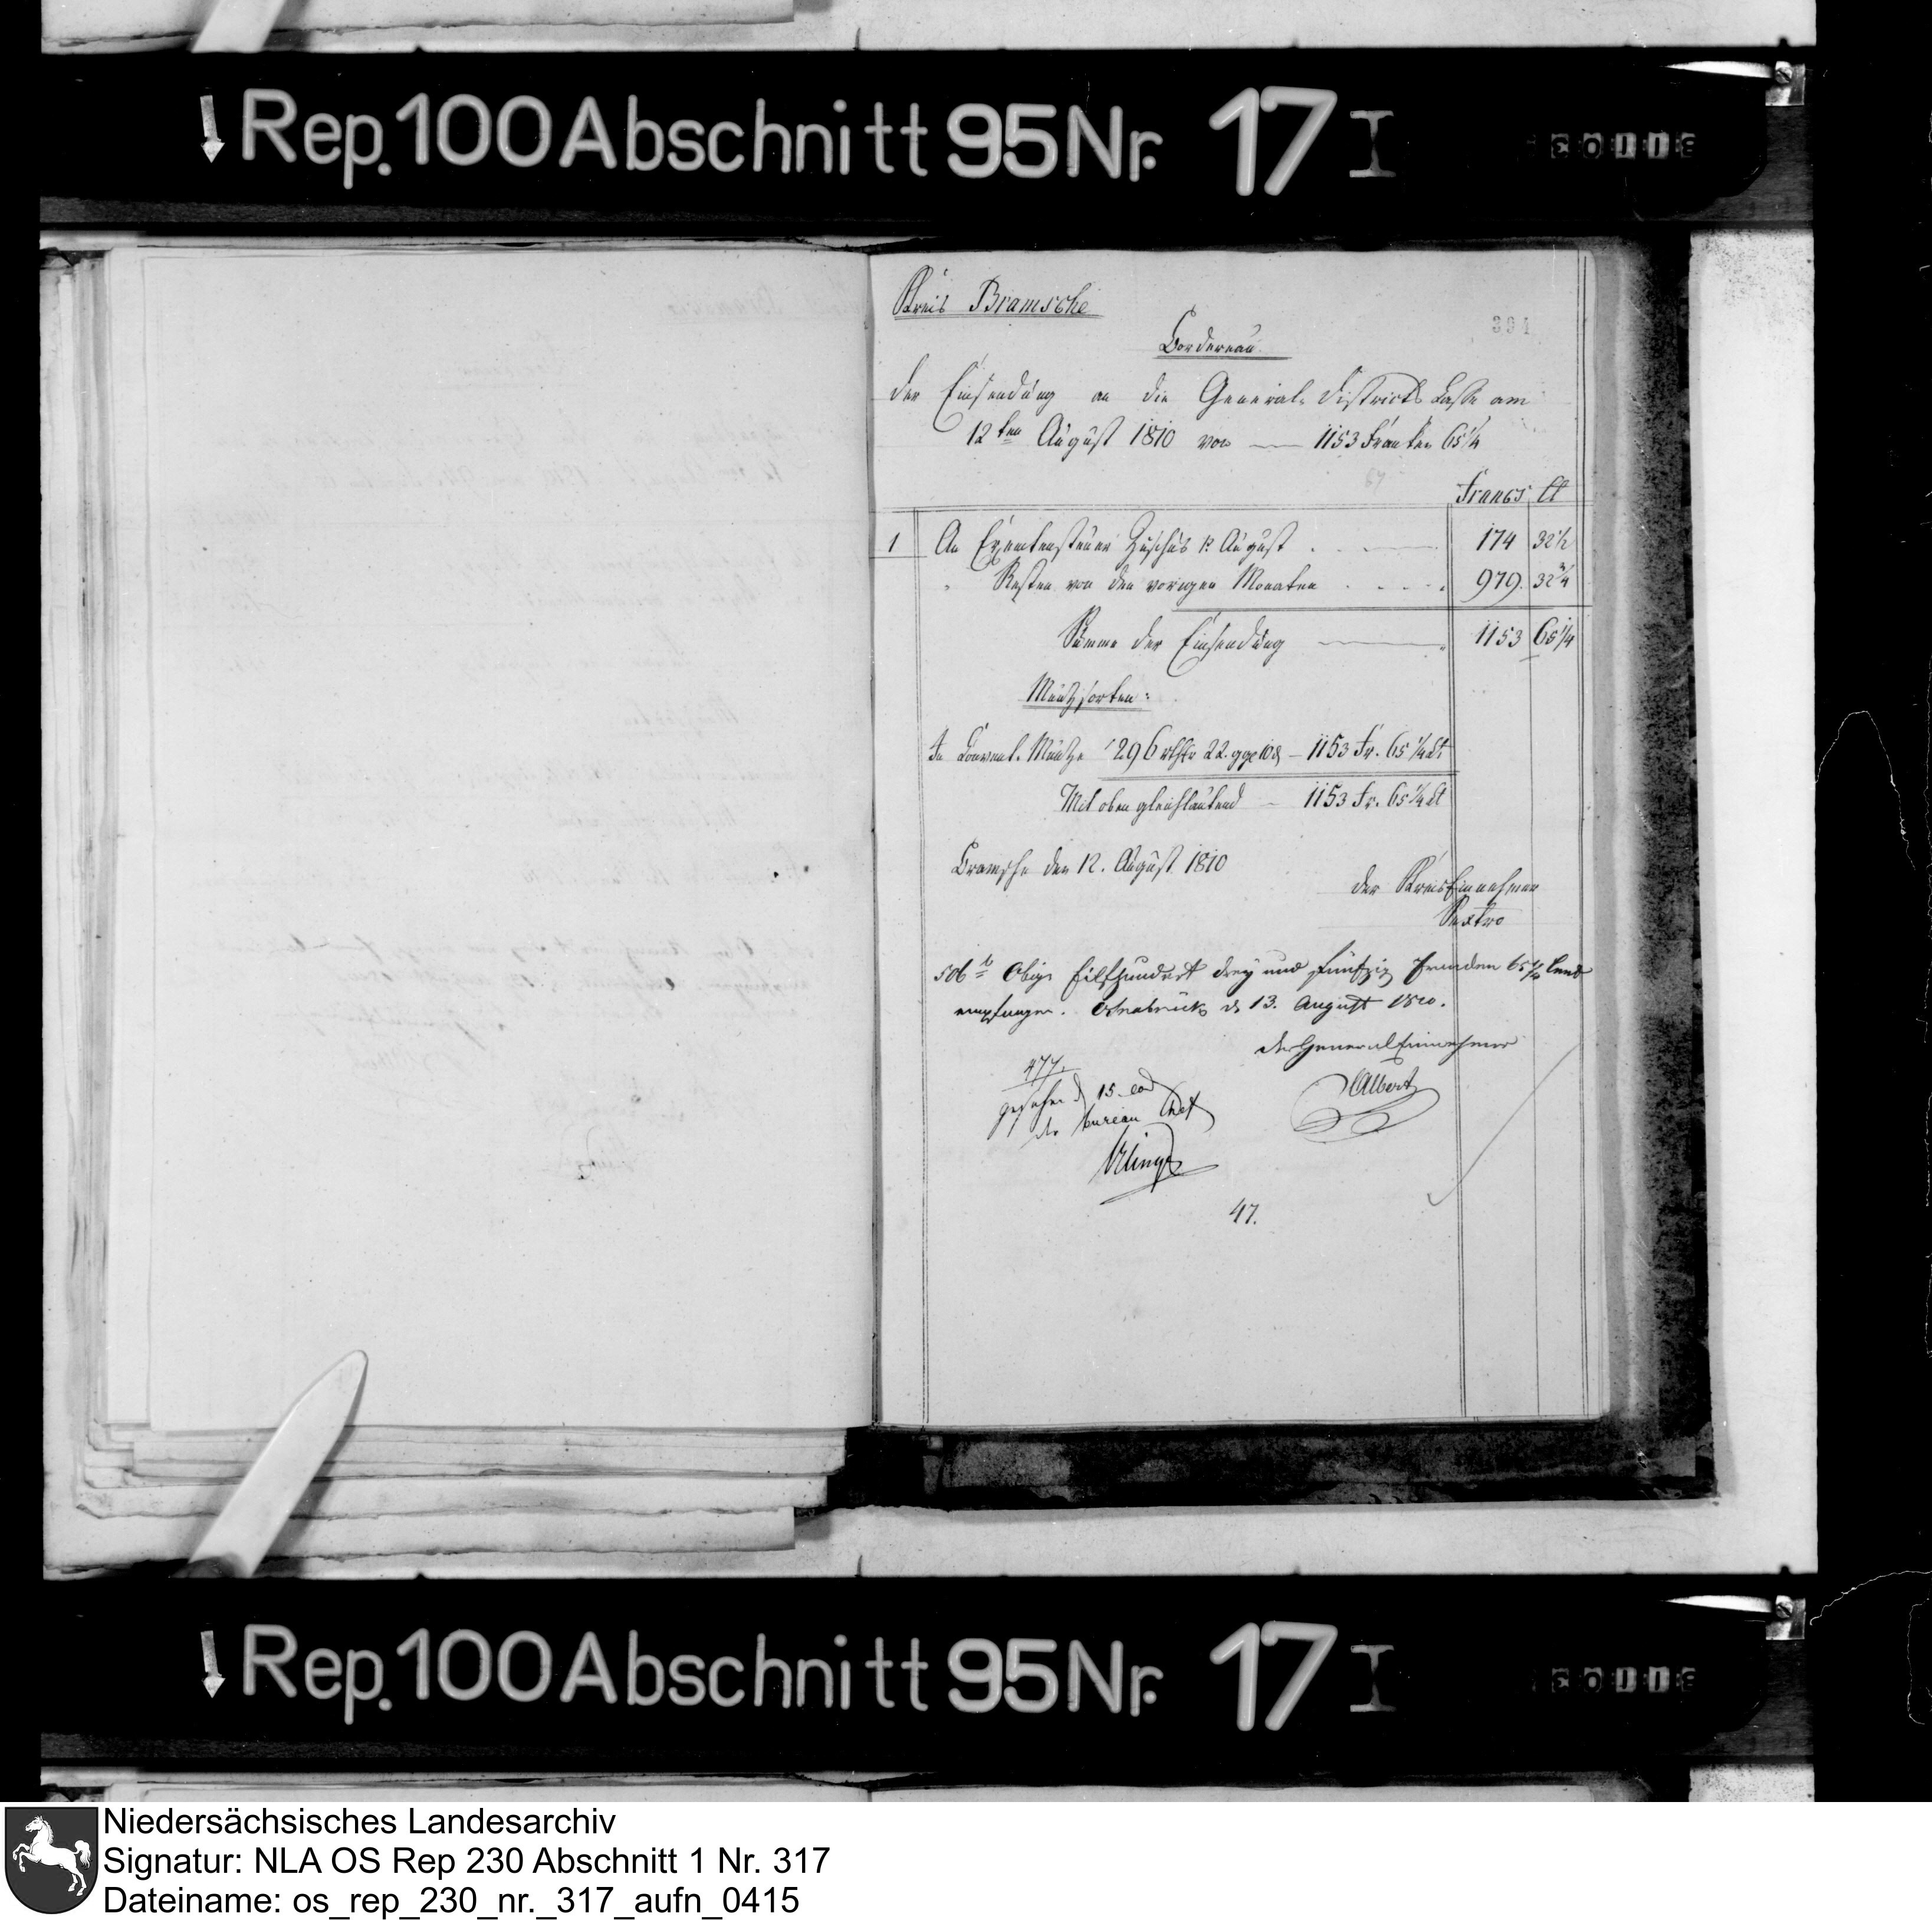 Rep. 100 Abschnitt 95 Nr. 17 I
Kreis Bramsche
391
Bordereau
der Einsendung an die General-Districts Casse am
12ten August 1810 von — 1153 Franken 65 1/4
Francs Ct
1 An Exemtensteuer Zuschus p August 174 32 1/2
" Resten von den vorigen Monaten 979. 32 3/4
Summe der Einsendung 1153 65 1/4
Müntzsorten:
In Convent. Müntze 296 rthlr 22. gge 10 d – 1153 Fr. 65 1/4 Ct
Mit oben gleichlautend – 1153 Fr. 65 1/4 Ct
Bramsche den 12. August 1810
der Kreis Einnehmer
Sextro
Obige Eilfhundert drey und fünfzig Franken 65 1/4 Cent
empfangen. Osnabrück d 13. August 1810.
der General Einnehmer
Albert
477.
gesehen d 15. eod
der bureau Chef
47.
Rep. 100 Abschnitt 95 Nr. 17 I
Niedersächsisches Landesarchiv
Signatur: NLA OS Rep 230 Abschnitt 1 Nr. 317
Dateiname: os_rep_230_nr._317_aufn_0415